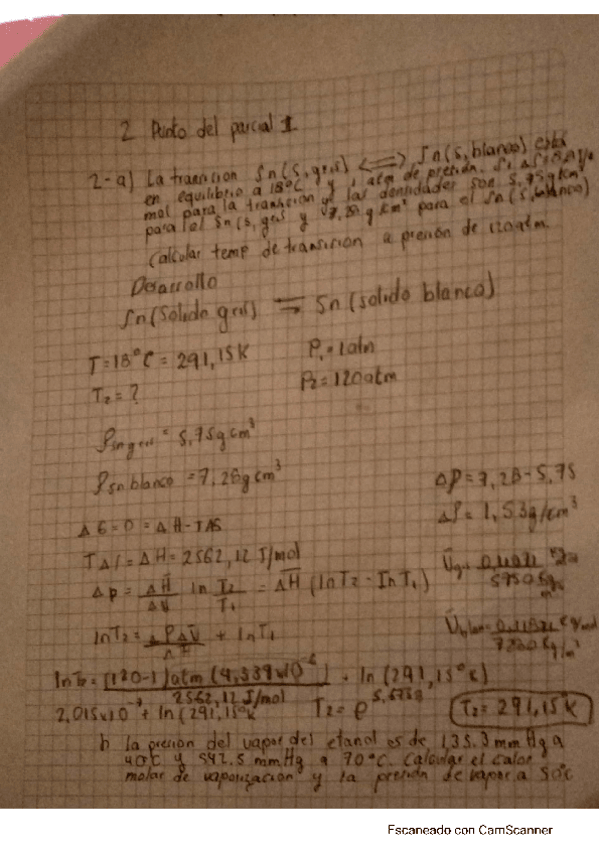 2 Punto del parcial 1
2-a) La transicion Sn(s,gris) ⇌ Sn(s,blanco) está
en equilibrio a 18°C y 1 atm de presión. Si ΔS
mol para la transicion y las densidades son 5,75 g km³
para el Sn(s,gris y 7,28 g km³ para el Sn(s,blanco)
Calcular temp de transicion a presión de 120 atm.
Desarrollo
Sn(Solido gris) ⇌ Sn(solido blanco)
T=18°C = 291,15K P₁=1atm
T₂=? P₂=120atm
ρsn gris = 5,75g cm³
ρsn blanco = 7,28g cm³ Δρ=7,28-5,75
ΔG=0=ΔH-TΔS Δρ=1,53g/cm³
TΔS=ΔH=2562,12 J/mol
Δp = ΔH/ΔV ln T₂/T₁ = ΔH (lnT₂ - lnT₁)
lnT₂ = ΔPΔV + lnT₁
lnT₂=(120-1)atm + ln(291,15°K)
2562,12 J/mol
2,015x10⁻⁷ + ln(291,15°K T₂= T₂=291,15°K
b La presión del vapor del etanol es de 135.3 mmHg a
40°C y 542.5 mmHg a 70°C. Calcular el calor
molar de vaporización y la presión de vapor a 50°C
Escaneado con CamScanner